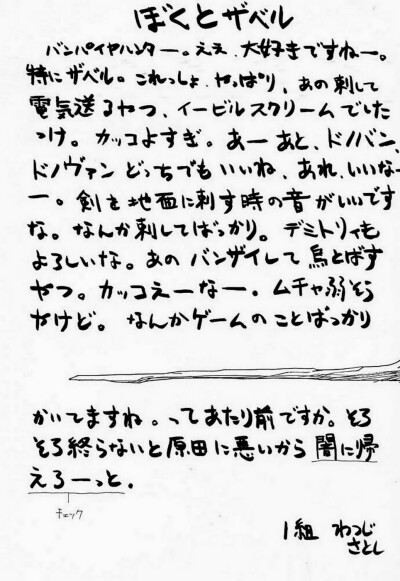 ぼくとザベル
バンパイヤハンター。ええ、大好きですねー。
特にザベル。これっしょ、やっぱり、あの刺して
電気送るやつ、イービルスクリームでした
っけ。カッコよすぎ。あーあと、ドノバン、
ドノヴァンどっちでもいいね、あれ、いいな
ー。剣を地面に刺す時の音がいいです
な。なんか刺してばっかり。デミトリィも
よろしいな。あのバンザイして鳥とばす
やつ。カッコえーなー。ムチャ弱そう
やけど。なんかゲームのことばっかり
かいてますね。ってあたり前ですか。そろ
そろ終らないと原田に悪いから闇に帰
えろーっと.
チェック
1組 わつじ
さとし